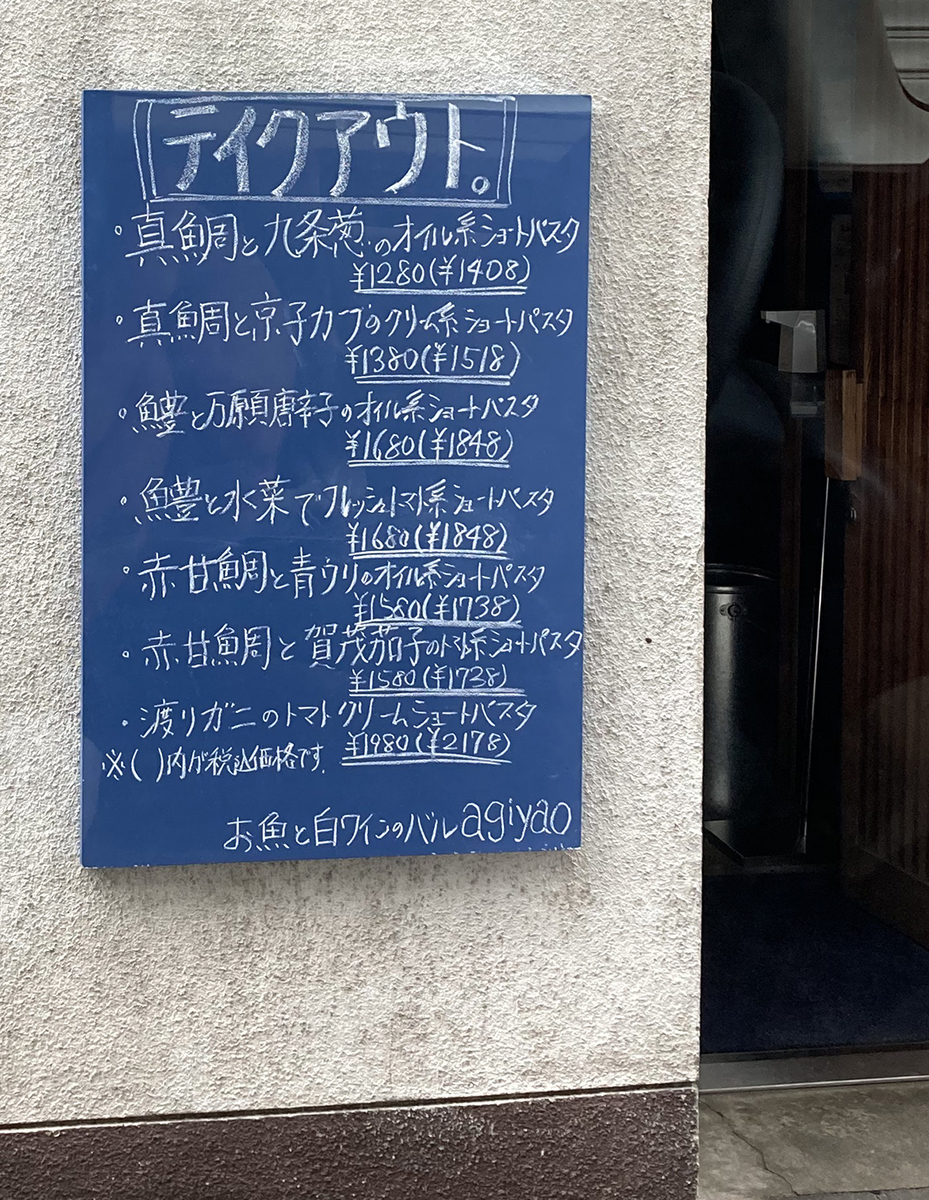 テイクアウト。
・真鯛と九条葱のオイル系ショートパスタ
¥1280(¥1408)
・真鯛と京子カブのクリーム系ショートパスタ
¥1380(¥1518)
・鱧と万願唐辛子のオイル系ショートパスタ
¥1680(¥1848)
・鱧と水菜でフレッシュトマト系ショートパスタ
¥1680(¥1848)
・赤甘鯛と青ウリのオイル系ショートパスタ
¥1580(¥1738)
・赤甘鯛と賀茂茄子のトマト系ショートパスタ
¥1580(¥1738)
・渡りガニのトマトクリームショートパスタ
¥1980(¥2178)
※( )内が税込価格です.
お魚と白ワインのバル agiyao